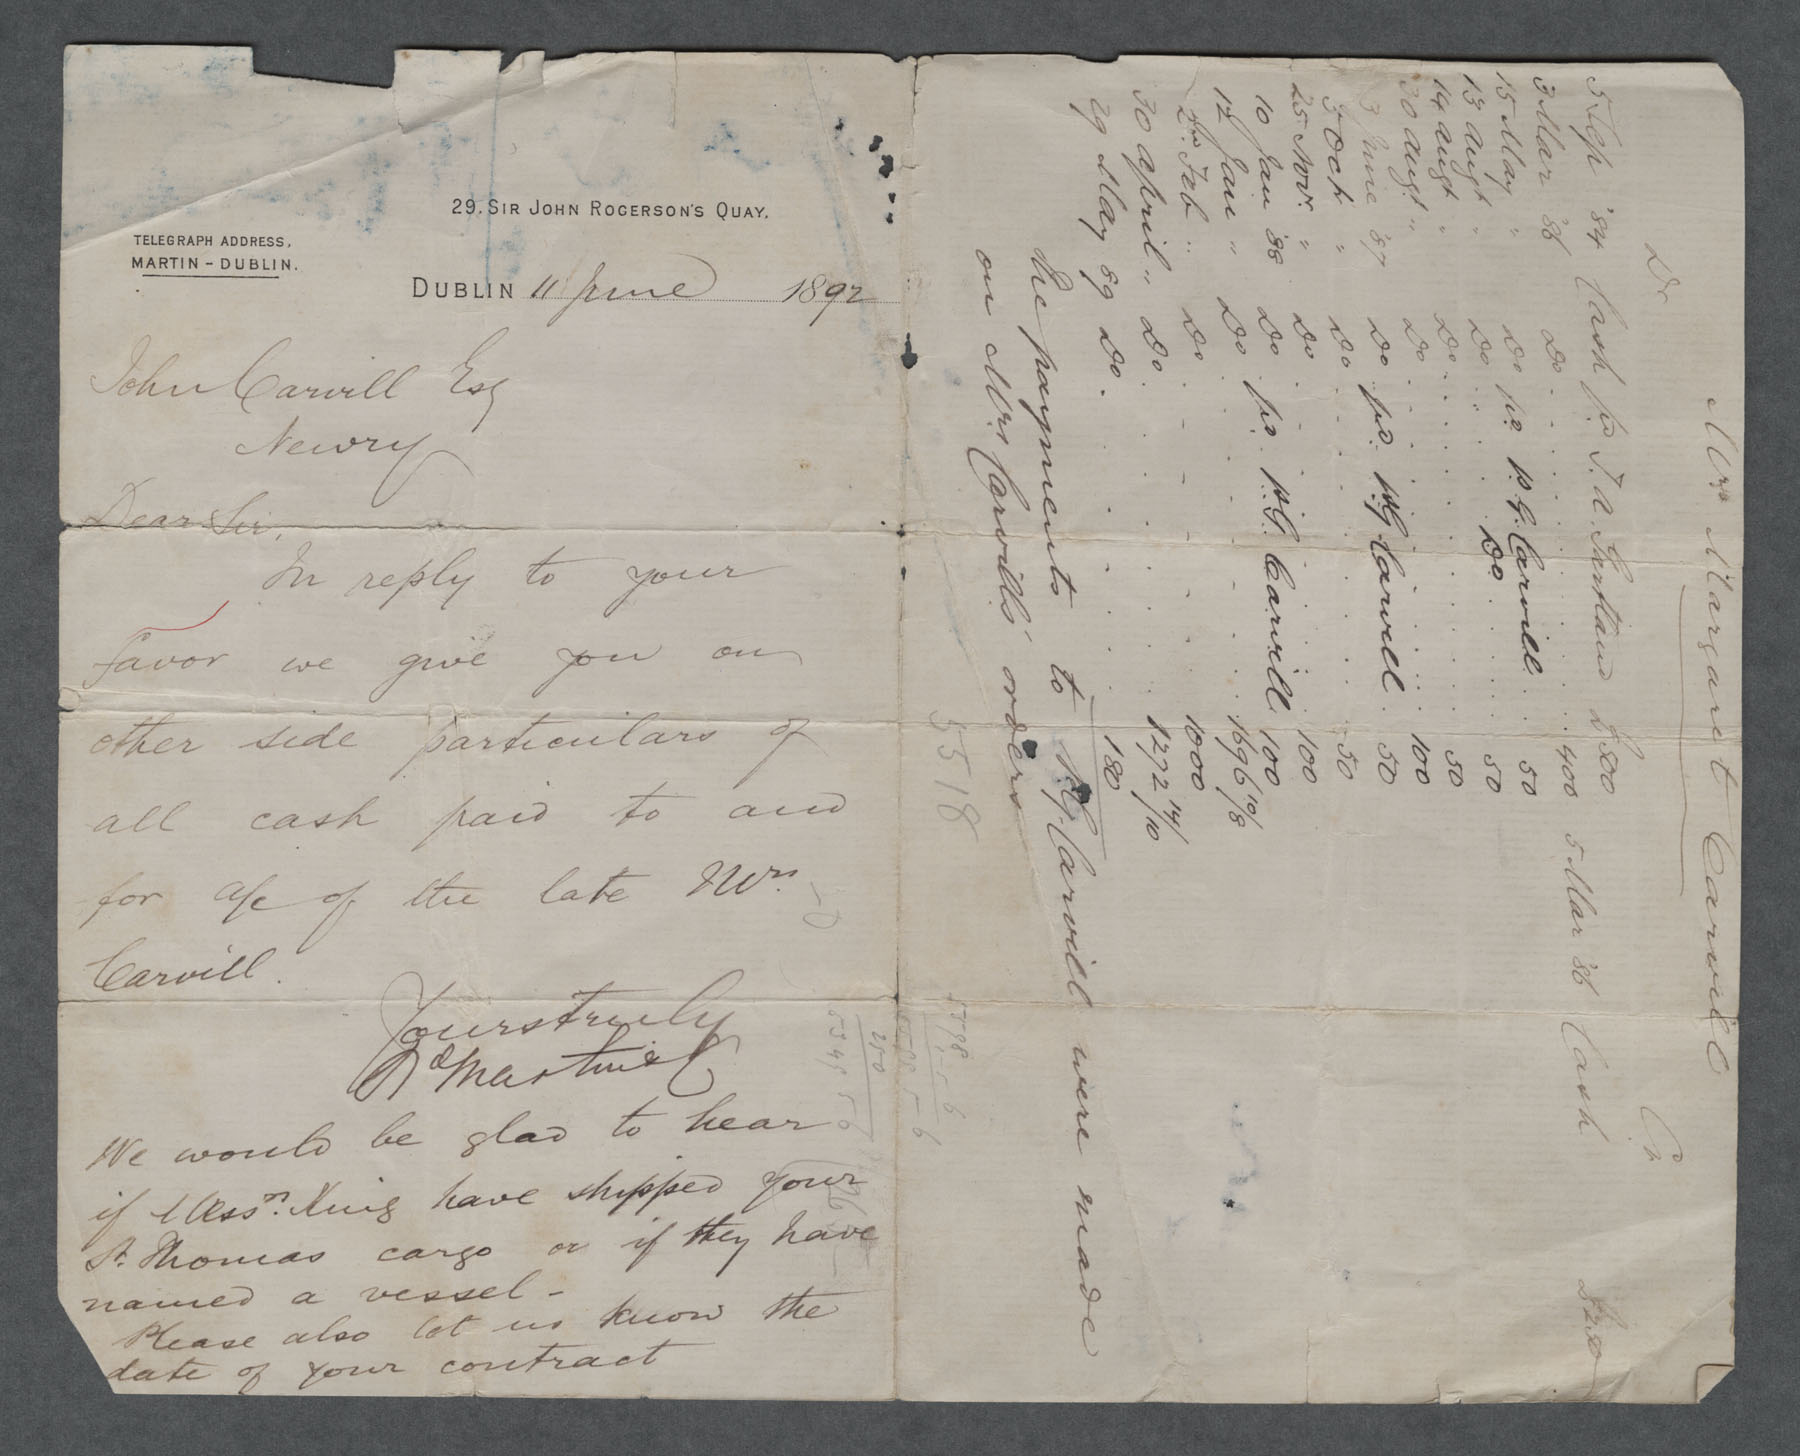 29. SIR JOHN ROGERSON'S QUAY.
TELEGRAPH ADDRESS,
MARTIN - DUBLIN.
DUBLIN 11 June 1892
John Carvill Esq
Newry
Dear Sir,
In reply to your
favor we give you on
other side particulars of
all cash paid to and
for a/c of the late Mrs.
Carvill.
Yours truly
We would be glad to hear
if Messrs. King have shipped your
St. Thomas cargo or if they have
named a vessel -
Please also let us know the
date of your contract
Mrs Margaret Carvill
Dr Cr
5 Sep '84 Cash pd J. A. £800 5 Mar '86 Cash £250
3 Mar '86 Do 400
15 May " Do pd p. G. Carvill 50
13 augt " Do Do 50
14 augt " Do 50
30 augt " Do 100
3 June '87 Do pd. p. G. Carvill 50
5 Oct " Do 50
25 Novr " Do 100
10 Jan '88 Do pd. p. G. Carvill 100
12 Jan " Do 1696 10/8
Feb " Do 1000
30 april " Do 1292 14/10
29 May 89 Do 180
the payments to p. G. Carvill were made
on Mrs Carvill's orders
5518
250